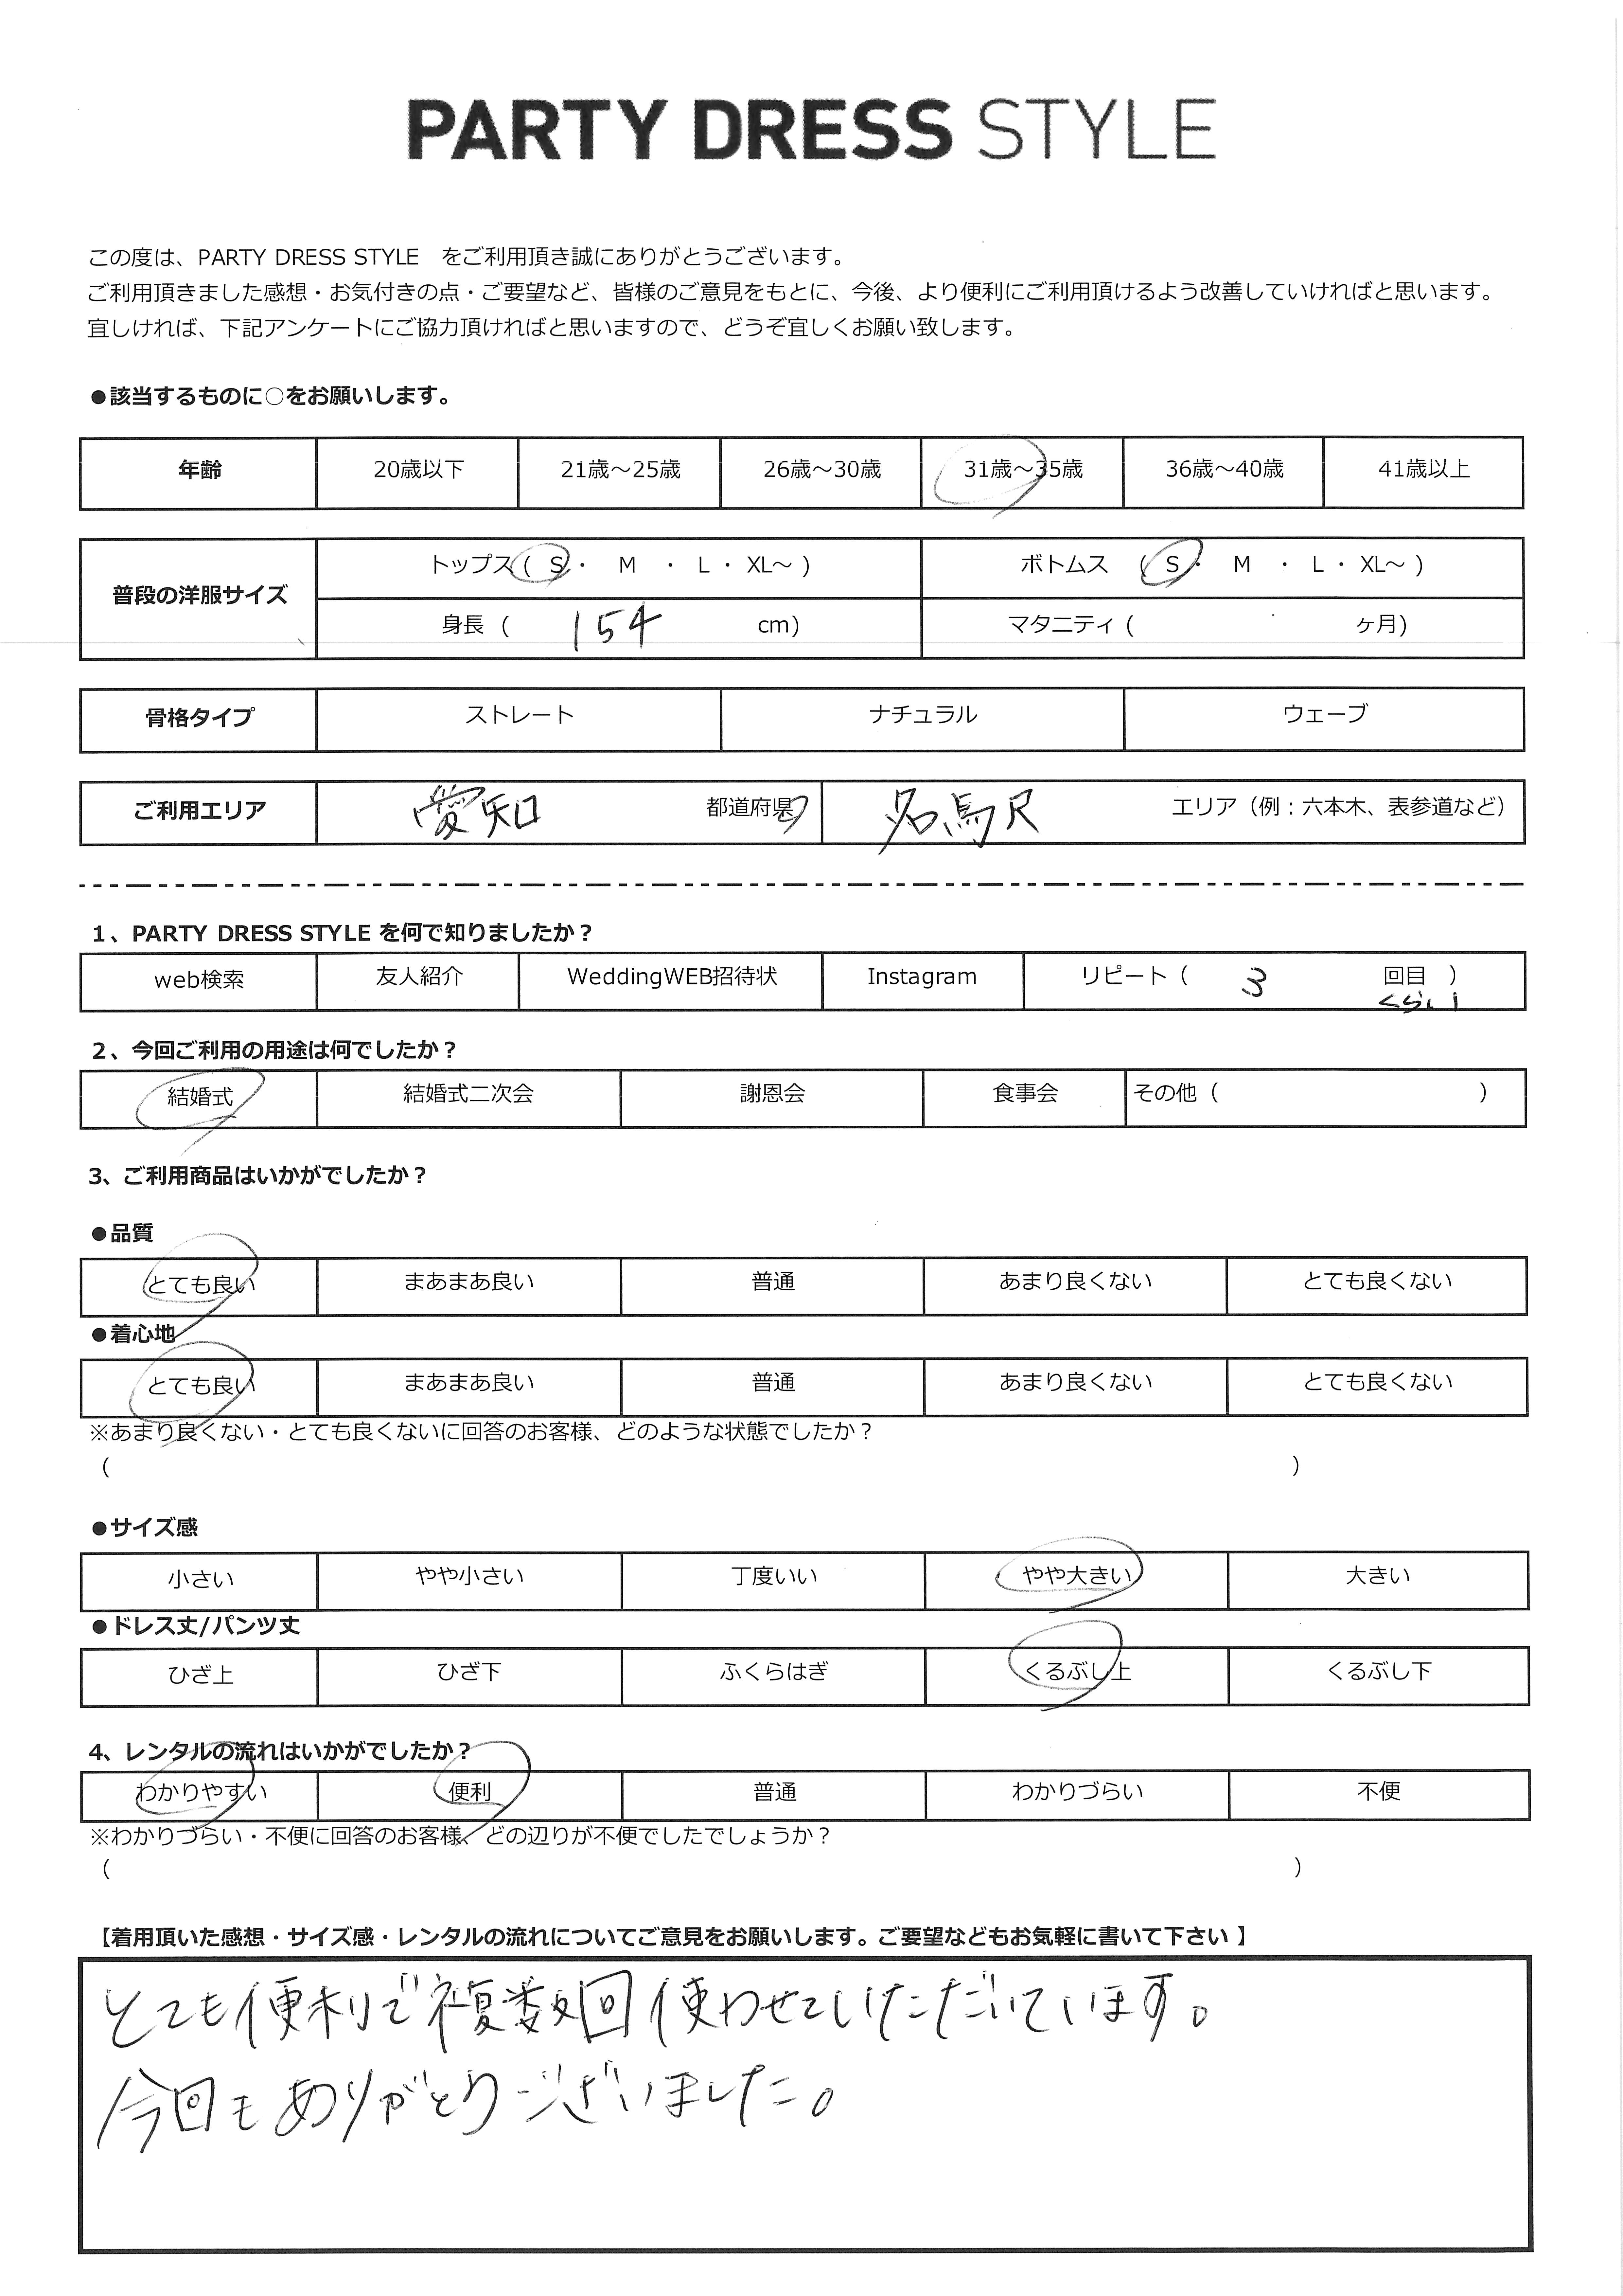 PARTY DRESS STYLE
この度は、PARTY DRESS STYLE をご利用頂き誠にありがとうございます。
ご利用頂きました感想・お気付きの点・ご要望など、皆様のご意見をもとに、今後、より便利にご利用頂けるよう改善していければと思います。
宜しければ、下記アンケートにご協力頂ければと思いますので、どうぞ宜しくお願い致します。
●該当するものに○をお願いします。
年齢 20歳以下 21歳～25歳 26歳～30歳 31歳～35歳 36歳～40歳 41歳以上
普段の洋服サイズ トップス ( S ・ M ・ L ・ XL～ ) ボトムス ( S ・ M ・ L ・ XL～ )
身長 ( 154 cm) マタニティ ( ヶ月)
骨格タイプ ストレート ナチュラル ウェーブ
ご利用エリア 愛知 都道府県 名 エリア（例：六本木、表参道など）
1、PARTY DRESS STYLE を何で知りましたか？
web検索 友人紹介 WeddingWEB招待状 Instagram リピート（ 3 回目 ）
くらい
2、今回ご利用の用途は何でしたか？
結婚式 結婚式二次会 謝恩会 食事会 その他（ ）
3、ご利用商品はいかがでしたか？
●品質
とても良い まあまあ良い 普通 あまり良くない とても良くない
●着心地
とても良い まあまあ良い 普通 あまり良くない とても良くない
※あまり良くない・とても良くないに回答のお客様、どのような状態でしたか？
( )
●サイズ感
小さい やや小さい 丁度いい やや大きい 大きい
●ドレス丈/パンツ丈
ひざ上 ひざ下 ふくらはぎ くるぶし上 くるぶし下
4、レンタルの流れはいかがでしたか？
わかりやすい 便利 普通 わかりづらい 不便
※わかりづらい・不便に回答のお客様、どの辺りが不便でしたでしょうか？
( )
【着用頂いた感想・サイズ感・レンタルの流れについてご意見をお願いします。ご要望などもお気軽に書いて下さい 】
とても便利で複数回使わせていただいています。
今回もありがとうございました。